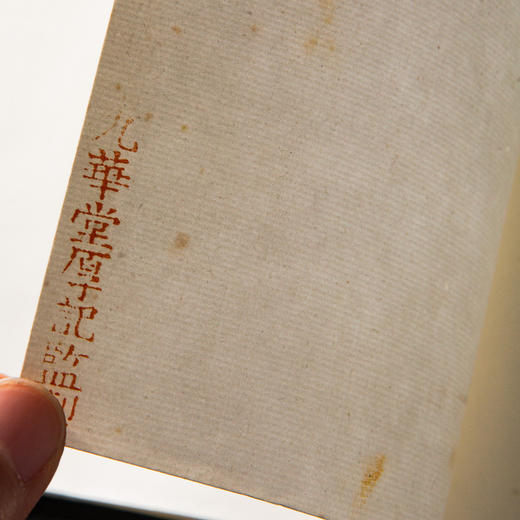 九華堂厚記監制